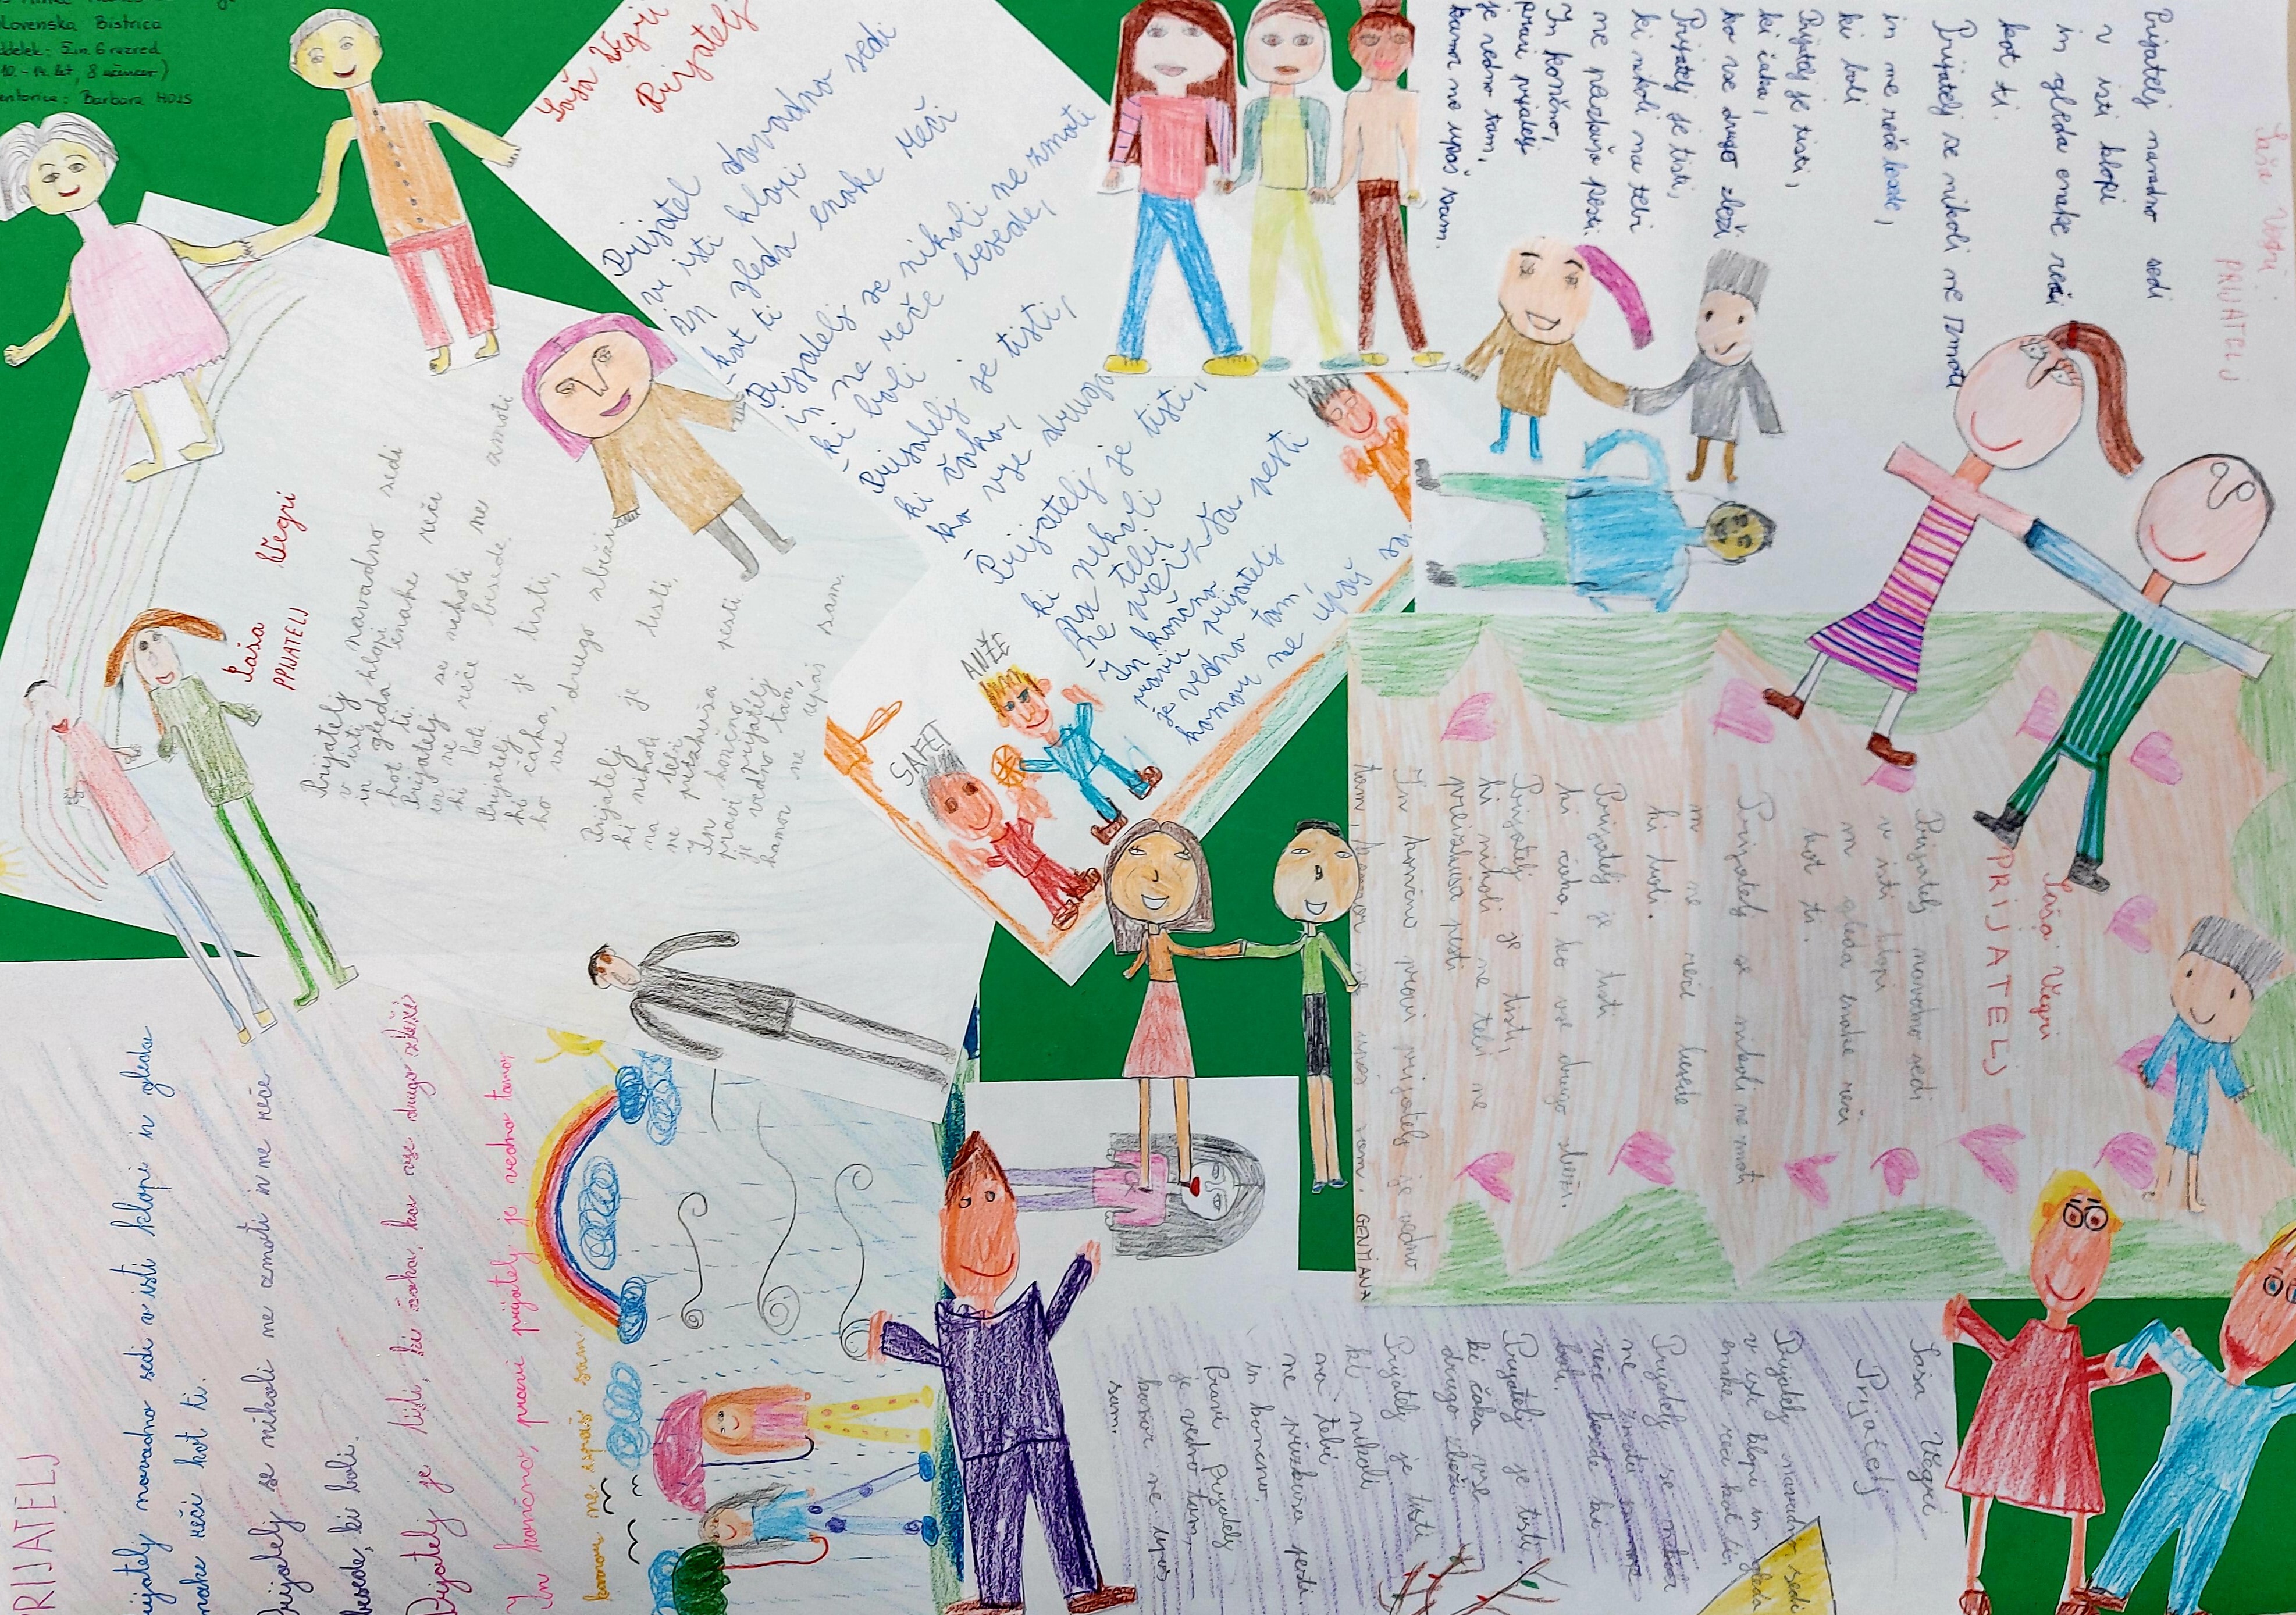 Slovenska Bistrica
Oddelek: 5. in 6. razred
(10.-14. let, 8 učencev)
Mentorica: Barbara HOJS
Saša Vegri
Prijatelj
Prijatel navadno sedi
v isti klopi
in gleda enake reči
kot ti
Prijatelj se nikoli ne zmoti
in ne reče besede,
ki boli
Prijatelj je tisti,
ki čaka,
ko vse drugo
Prijatelj je tisti,
ki nikoli
na tebi
ne preizkuša pesti
In končno
pravi prijatelj
je vedno tam
kamor ne upaš sam
SAFET
ANŽE
Saša Vegri
PRIJATELJ
Prijatelj navadno sedi
v isti klopi
in gleda enake reči
kot ti.
Prijatelj se nikoli ne zmoti
in me reče besede,
ki boli
Prijatelj je tisti,
ki čaka,
ko vse drugo zbeži
Prijatelj je tisti,
ki nikoli na tebi
ne preizkuša pesti.
In končno,
pravi prijatelj
je vedno tam,
kamor ne upaš sam.
Saša Vegri
PRIJATELJ
Prijatelj navadno sedi
v isti klopi
in gleda enake reči
kot ti.
Prijatelj se nikoli ne zmoti
in ne reče besede,
ki boli.
Prijatelj je tisti,
ki čaka,
ko vse drugo zbeži
Prijatelj je tisti,
ki nikoli
na tebi
ne preizkuša pesti
In končno
pravi prijatelj
je vedno tam,
kamor ne upaš sam.
Saša Vegri
PRIJATELJ
Prijatelj navadno sedi
v isti klopi
in gleda enake reči
kot ti.
Prijatelj se nikoli ne zmoti
in ne reče besede
ki boli.
Prijatelj je tisti
ki čaka, ko vse drugo zbeži.
Prijatelj je tisti,
ki nikoli na tebi ne
preizkuša pesti
In končno pravi prijatelj je vedno
tam, kamor ne upaš sam.
GENTIANA
PRIJATELJ
Prijatelj navadno sedi v isti klopi in gleda
enake reči kot ti.
Prijatelj se nikoli ne zmoti in ne reče
besede, ki boli.
Prijatelj je tisti, ki čaka, ko vse drugo zbeži
In končno, pravi prijatelj je vedno tam,
kamor ne upaš sam
Saša Vegri
Prijatelj
Prijatelj navadno sedi
v isti klopi in gleda
enake reči kot ti.
Prijatelj se nikoli
ne zmoti in ne
reče besede ki
boli.
Prijatelj je tisti,
ki čaka vse
drugo zbeži
Prijatelj je tisti
ki nikoli
na tebi
ne preizkuša pesti.
in končno,
Pravi Prijatelj
je vedno tam,
kamor ne upaš
sam.